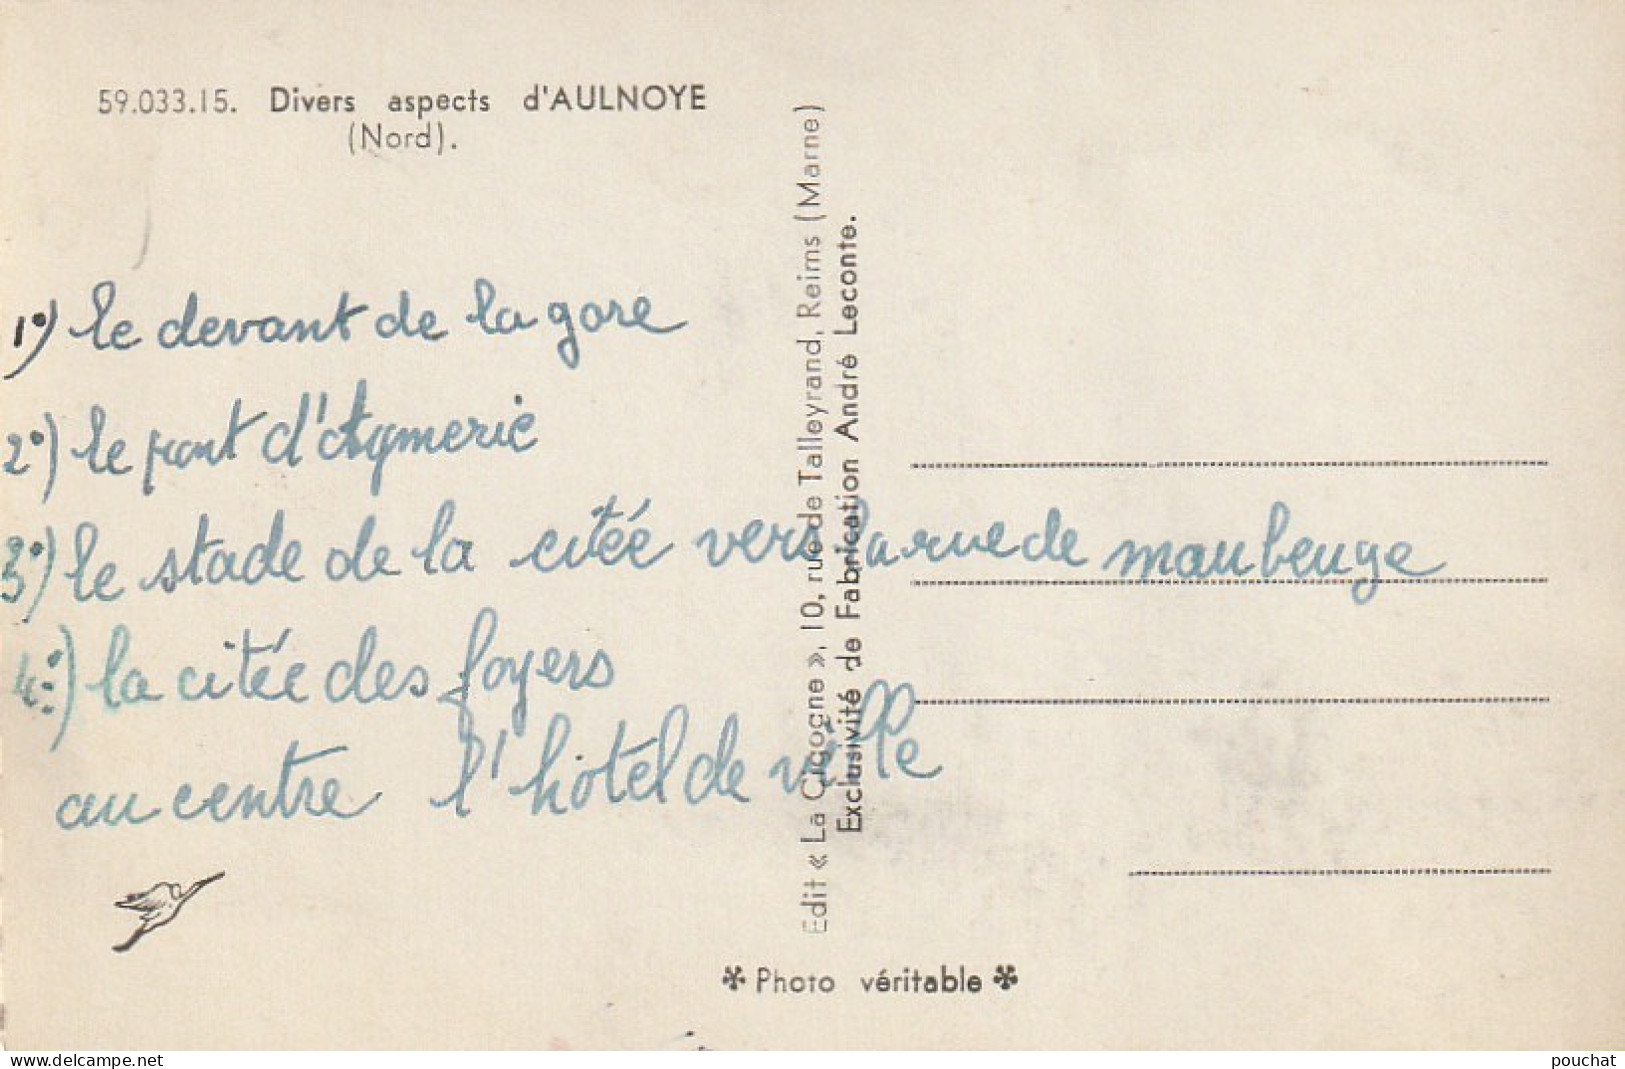 59.033.15. Divers aspects d'AULNOYE
(Nord).
1°) le devant de la gare
2°) le pont d'Aymeric
3°) le stade de la citée vers la rue de maubeuge
4°) la citée des foyers
au centre l'hôtel de ville
Edit « La Cicogne », 10, rue de Talleyrand, Reims (Marne)
Exclusivité de Fabrication André Leconte.
* Photo véritable *
www.delcampe.net
pouchat